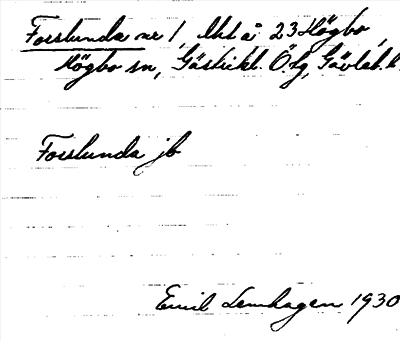 Forslunda nr 1, lht å 23 Högbo,
Högbo sn, Gästrikl. Ö. tg, Gävleb. l.
Forslunda jb
Emil Lemhagen 1930